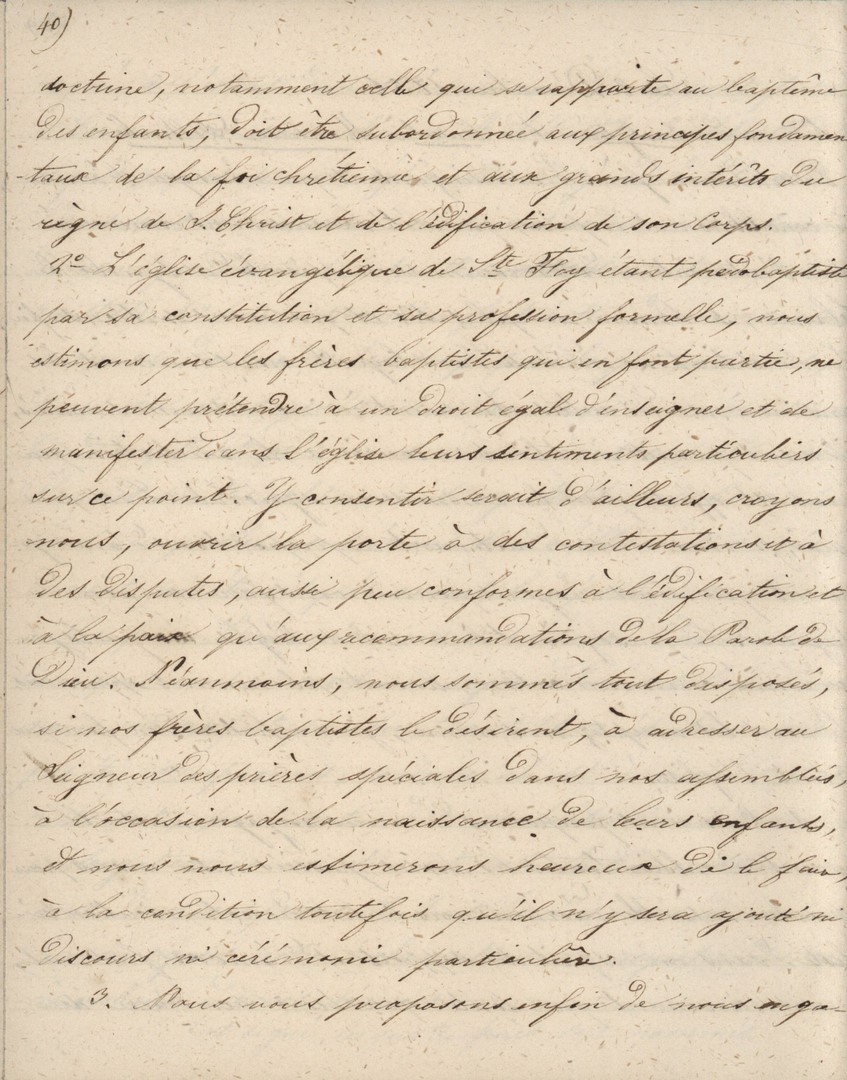 40)
doctrine, notamment celle qui se rapporte au baptême
des enfants, doit être subordonnée aux principes fondamen
-taux de la foi chrétienne, et aux grands intérêts du
règne de J. Christ et de l'édification de son Corps.
2º L'église évangélique de Ste Foy étant pédobaptiste
par sa constitution et sa profession formelle, nous
estimons que les frères baptistes qui en font partie, ne
peuvent prétendre à un droit égal d'enseigner et de
manifester dans l'église leurs sentiments particuliers
sur ce point. Y consentir serait d'ailleurs, croyons
nous, ouvrir la porte à des contestations et à
des disputes, aussi peu conformes à l'édification et
à la paix qu'aux recommandations de la Parole de
Dieu. Néanmoins, nous sommes tout disposés,
si nos frères baptistes le désirent, à adresser au
Seigneur des prières spéciales dans nos assemblées,
à l'occasion de la naissance de leurs enfants,
& nous nous estimerons heureux de le faire,
à la condition toutefois qu'il n'y sera ajouté ni
discours ni cérémonie particulière.
3. Nous vous proposons enfin de nous enga-